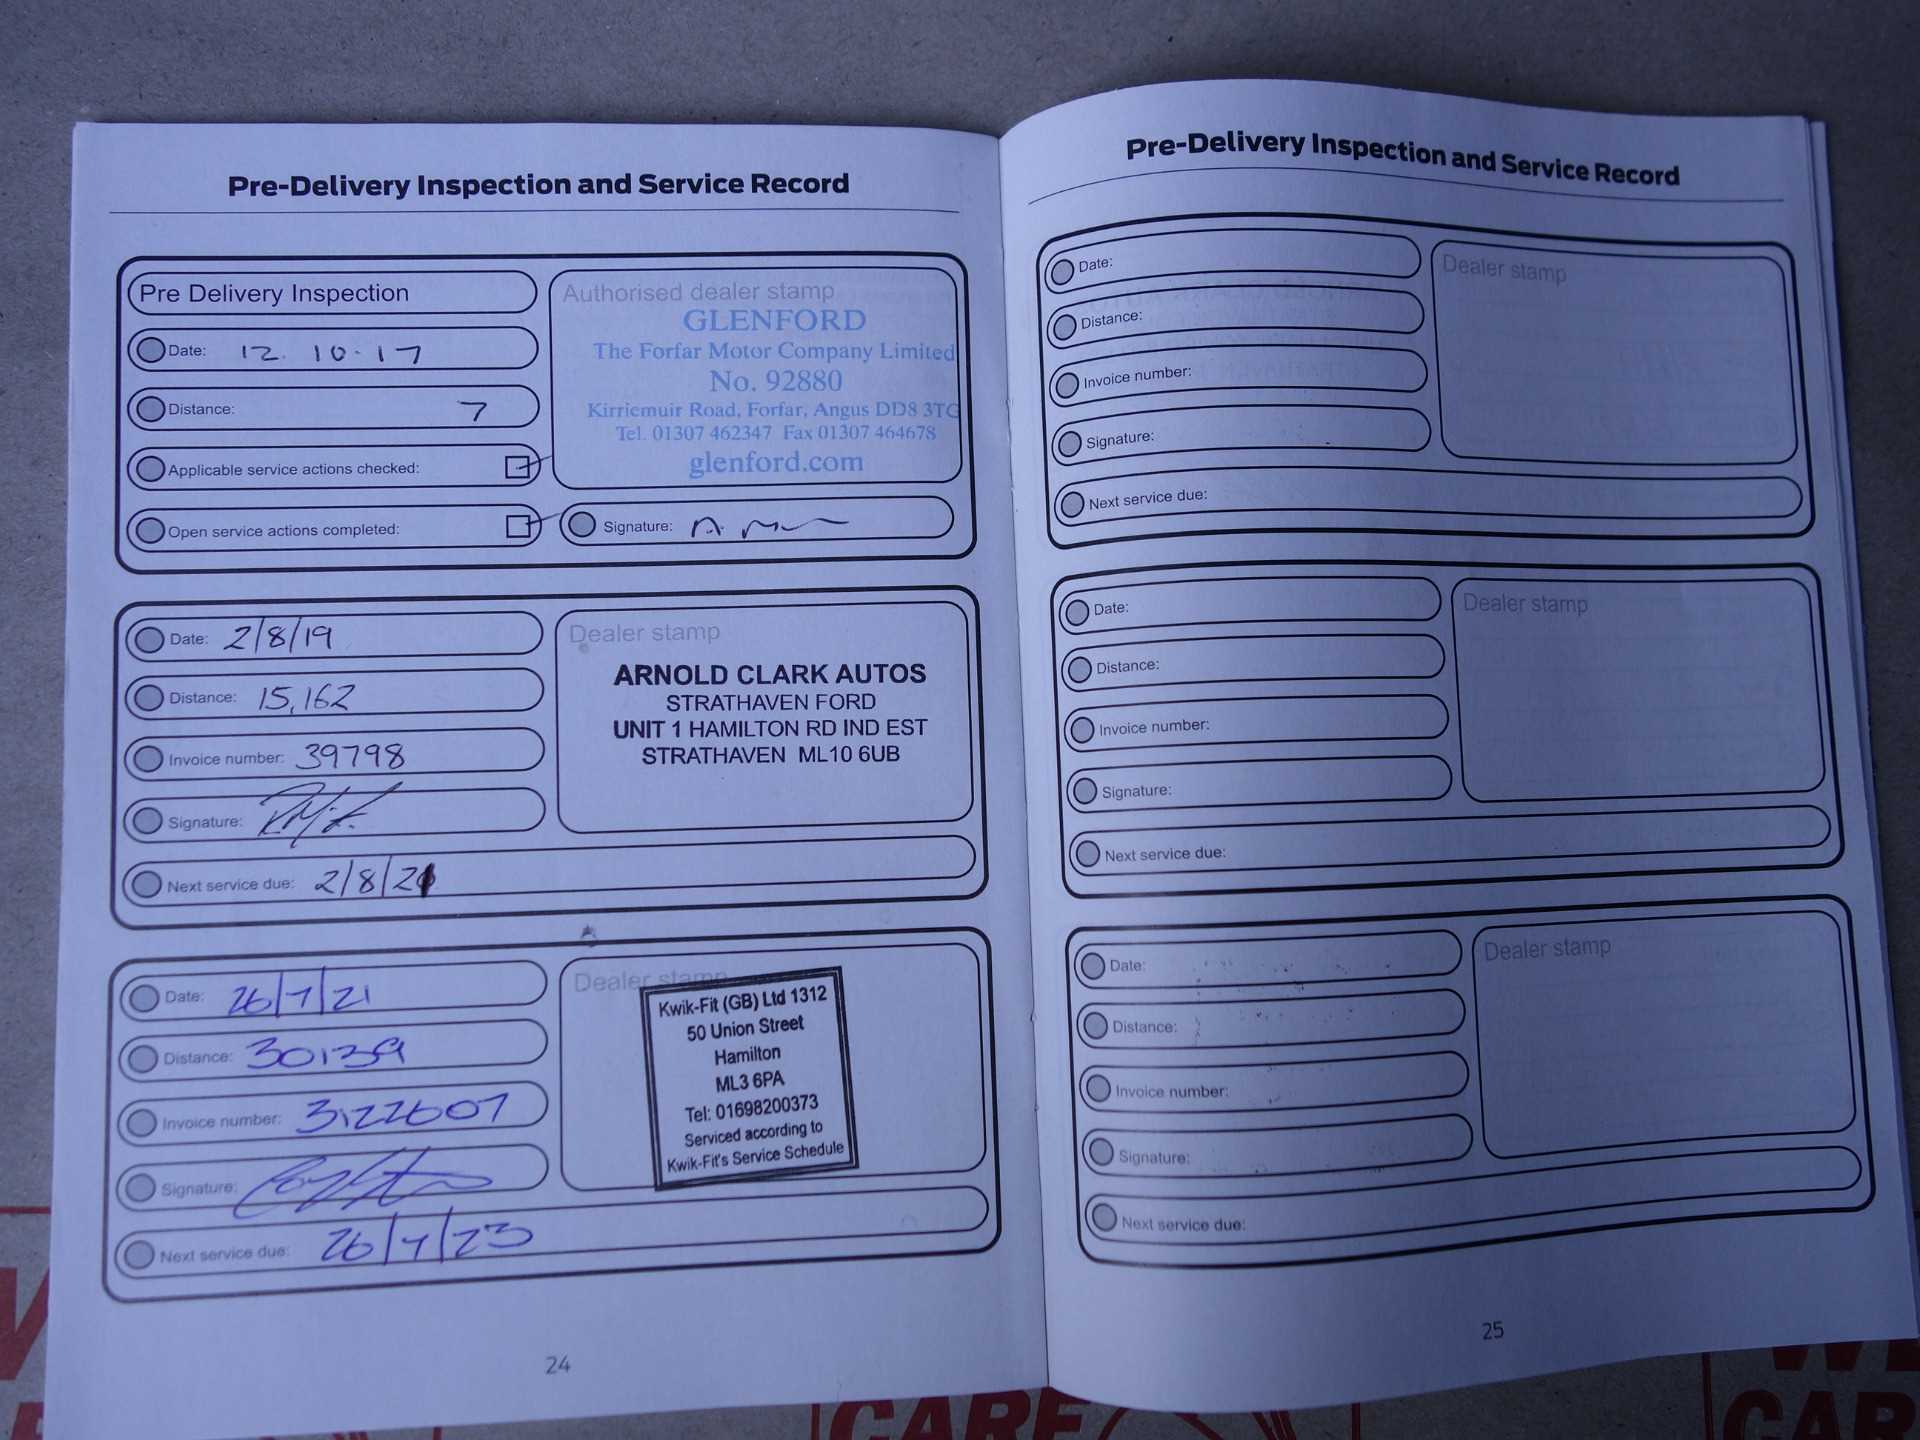 Pre-Delivery Inspection and Service Record
Pre Delivery Inspection
Date: 12.10.17
Distance: 7
Applicable service actions checked:
Open service actions completed:
Authorised dealer stamp
GLENFORD
The Forfar Motor Company Limited
No. 92880
Kirriemuir Road, Forfar, Angus DD8 3TG
Tel. 01307 462347 Fax 01307 464678
glenford.com
Signature:
Date: 2/8/19
Distance: 15,162
Invoice number: 39798
Signature:
Next service due: 2/8/21
Dealer stamp
ARNOLD CLARK AUTOS
STRATHAVEN FORD
UNIT 1 HAMILTON RD IND EST
STRATHAVEN ML10 6UB
Date: 26/7/21
Distance: 30139
Invoice number: 3122607
Signature:
Next service due: 26/7/23
Dealer stamp
Kwik-Fit (GB) Ltd 1312
50 Union Street
Hamilton
ML3 6PA
Tel: 01698200373
Serviced according to
Kwik-Fit's Service Schedule
24
Pre-Delivery Inspection and Service Record
Date:
Distance:
Invoice number:
Signature:
Next service due:
Dealer stamp
Date:
Distance:
Invoice number:
Signature:
Next service due:
Dealer stamp
Date:
Distance:
Invoice number:
Signature:
Next service due:
Dealer stamp
25
CARE